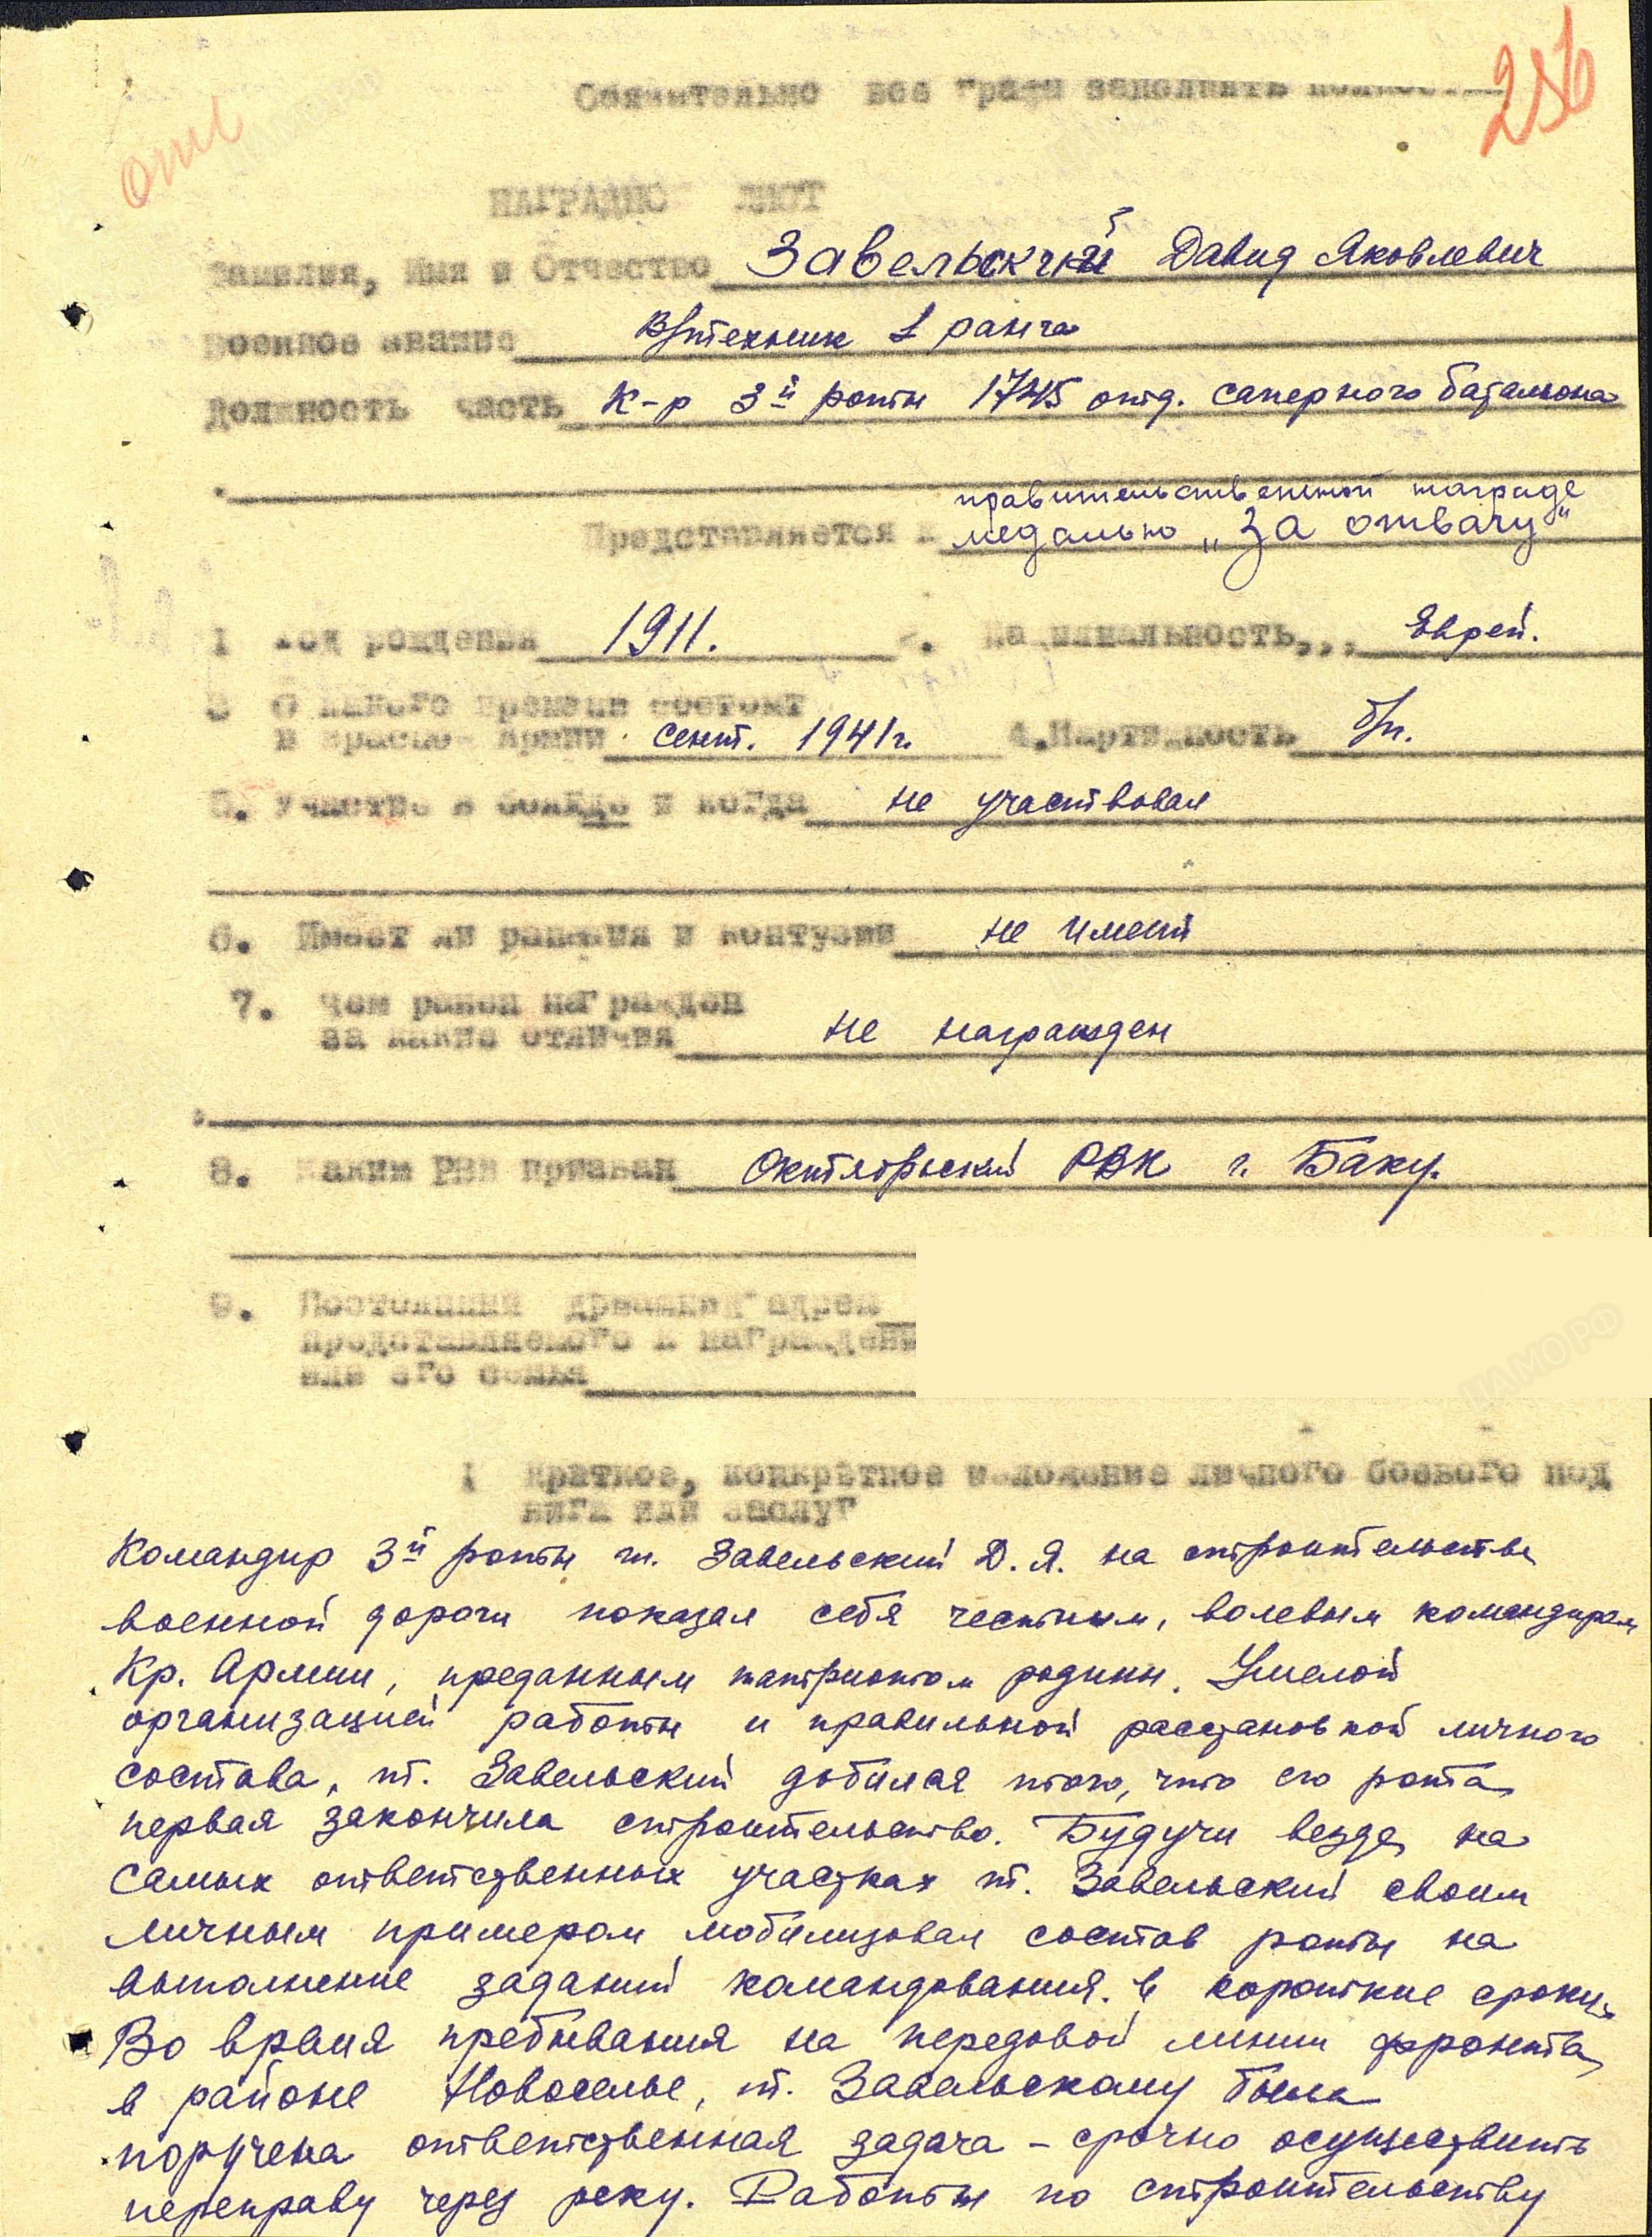 256
опл
Обязательно все графы заполнять
НАГРАДНО ЛИСТ
Фамилия, Имя и Отчество Завельский Давид Яковлевич
Военное звание В/техник 1 ранга
Должность часть К-р 3й роты 1745 отд. саперного батальона
правительственной награде
Представляется к медалью „За отвагу"
1 Год рождения 1911. 2. Национальность,,, Еврей.
3 С какого времени состоит
в красной армии сент. 1941 г. 4. Партийность б/п.
5. Участие в боях где и когда не участвовал
6. Имеет ли ранения и контузии не имеет
7. Чем ранее награжден
за какие отличия не награжден
8. Каким РВК призван Октябрьский РВК г. Баку.
9. Постоянный домашний адрес
представляемого к награждени
или его семьи
I Краткое, конкретное изложение личного боевого под
вига или заслуг
Командир 3й роты т. Завельский Д. Я. на строительстве
военной дороги показал себя честным, волевым командиром
Кр. Армии, преданным патриотом родины. Умелой
организацией работы и правильной расстановкой личного
состава, т. Завельский добился того, что его рота
первая закончила строительство. Будучи везде на
самых ответственных участках т. Завельский своим
личным примером мобилизовал состав роты на
выполнение заданий командования в короткие сроки.
Во время пребывания на передовой линии фронта
в районе Новоселье, т. Завельскому была
поручена ответственная задача – срочно осуществить
переправу через реку. Работы по строительству